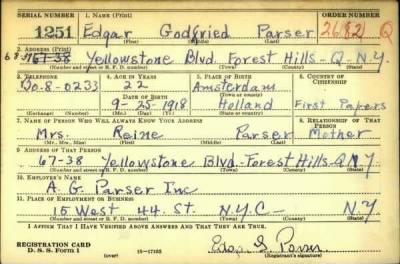 SERIAL NUMBER 1. NAME (Print) ORDER NUMBER
1251 Edgar Godfried Parser 2682 Q
(First) (Middle) (Last)
2. ADDRESS (Print)
67-38 Yellowstone Blvd Forest Hills-Q N.Y.
(Number and street or R. F. D. number) (Town) (County) (State)
3. TELEPHONE 4. AGE IN YEARS 5. PLACE OF BIRTH 6. COUNTRY OF CITIZENSHIP
Bo.8-0233 22 Amsterdam
DATE OF BIRTH (Town or county)
9-25-1918 Holland First Papers
(Exchange) (Number) (Mo.) (Day) (Yr.) (State or country)
7. NAME OF PERSON WHO WILL ALWAYS KNOW YOUR ADDRESS 8. RELATIONSHIP OF THAT PERSON
Mrs. Reine Parser Mother
(Mr., Mrs., Miss) (First) (Middle) (Last)
9. ADDRESS OF THAT PERSON
67-38 Yellowstone Blvd-Forest Hills-Q N.Y.
(Number and street or R. F. D. number) (Town) (County) (State)
10. EMPLOYER'S NAME
A. G. Parser Inc
11. PLACE OF EMPLOYMENT OR BUSINESS
15 West 44. St. N.Y.C- N.Y
(Number and street or R. F. D. number) (Town) (County) (State)
I AFFIRM THAT I HAVE VERIFIED ABOVE ANSWERS AND THAT THEY ARE TRUE.
REGISTRATION CARD
D. S. S. Form 1 (over) 16-17105 (Registrant's signature)